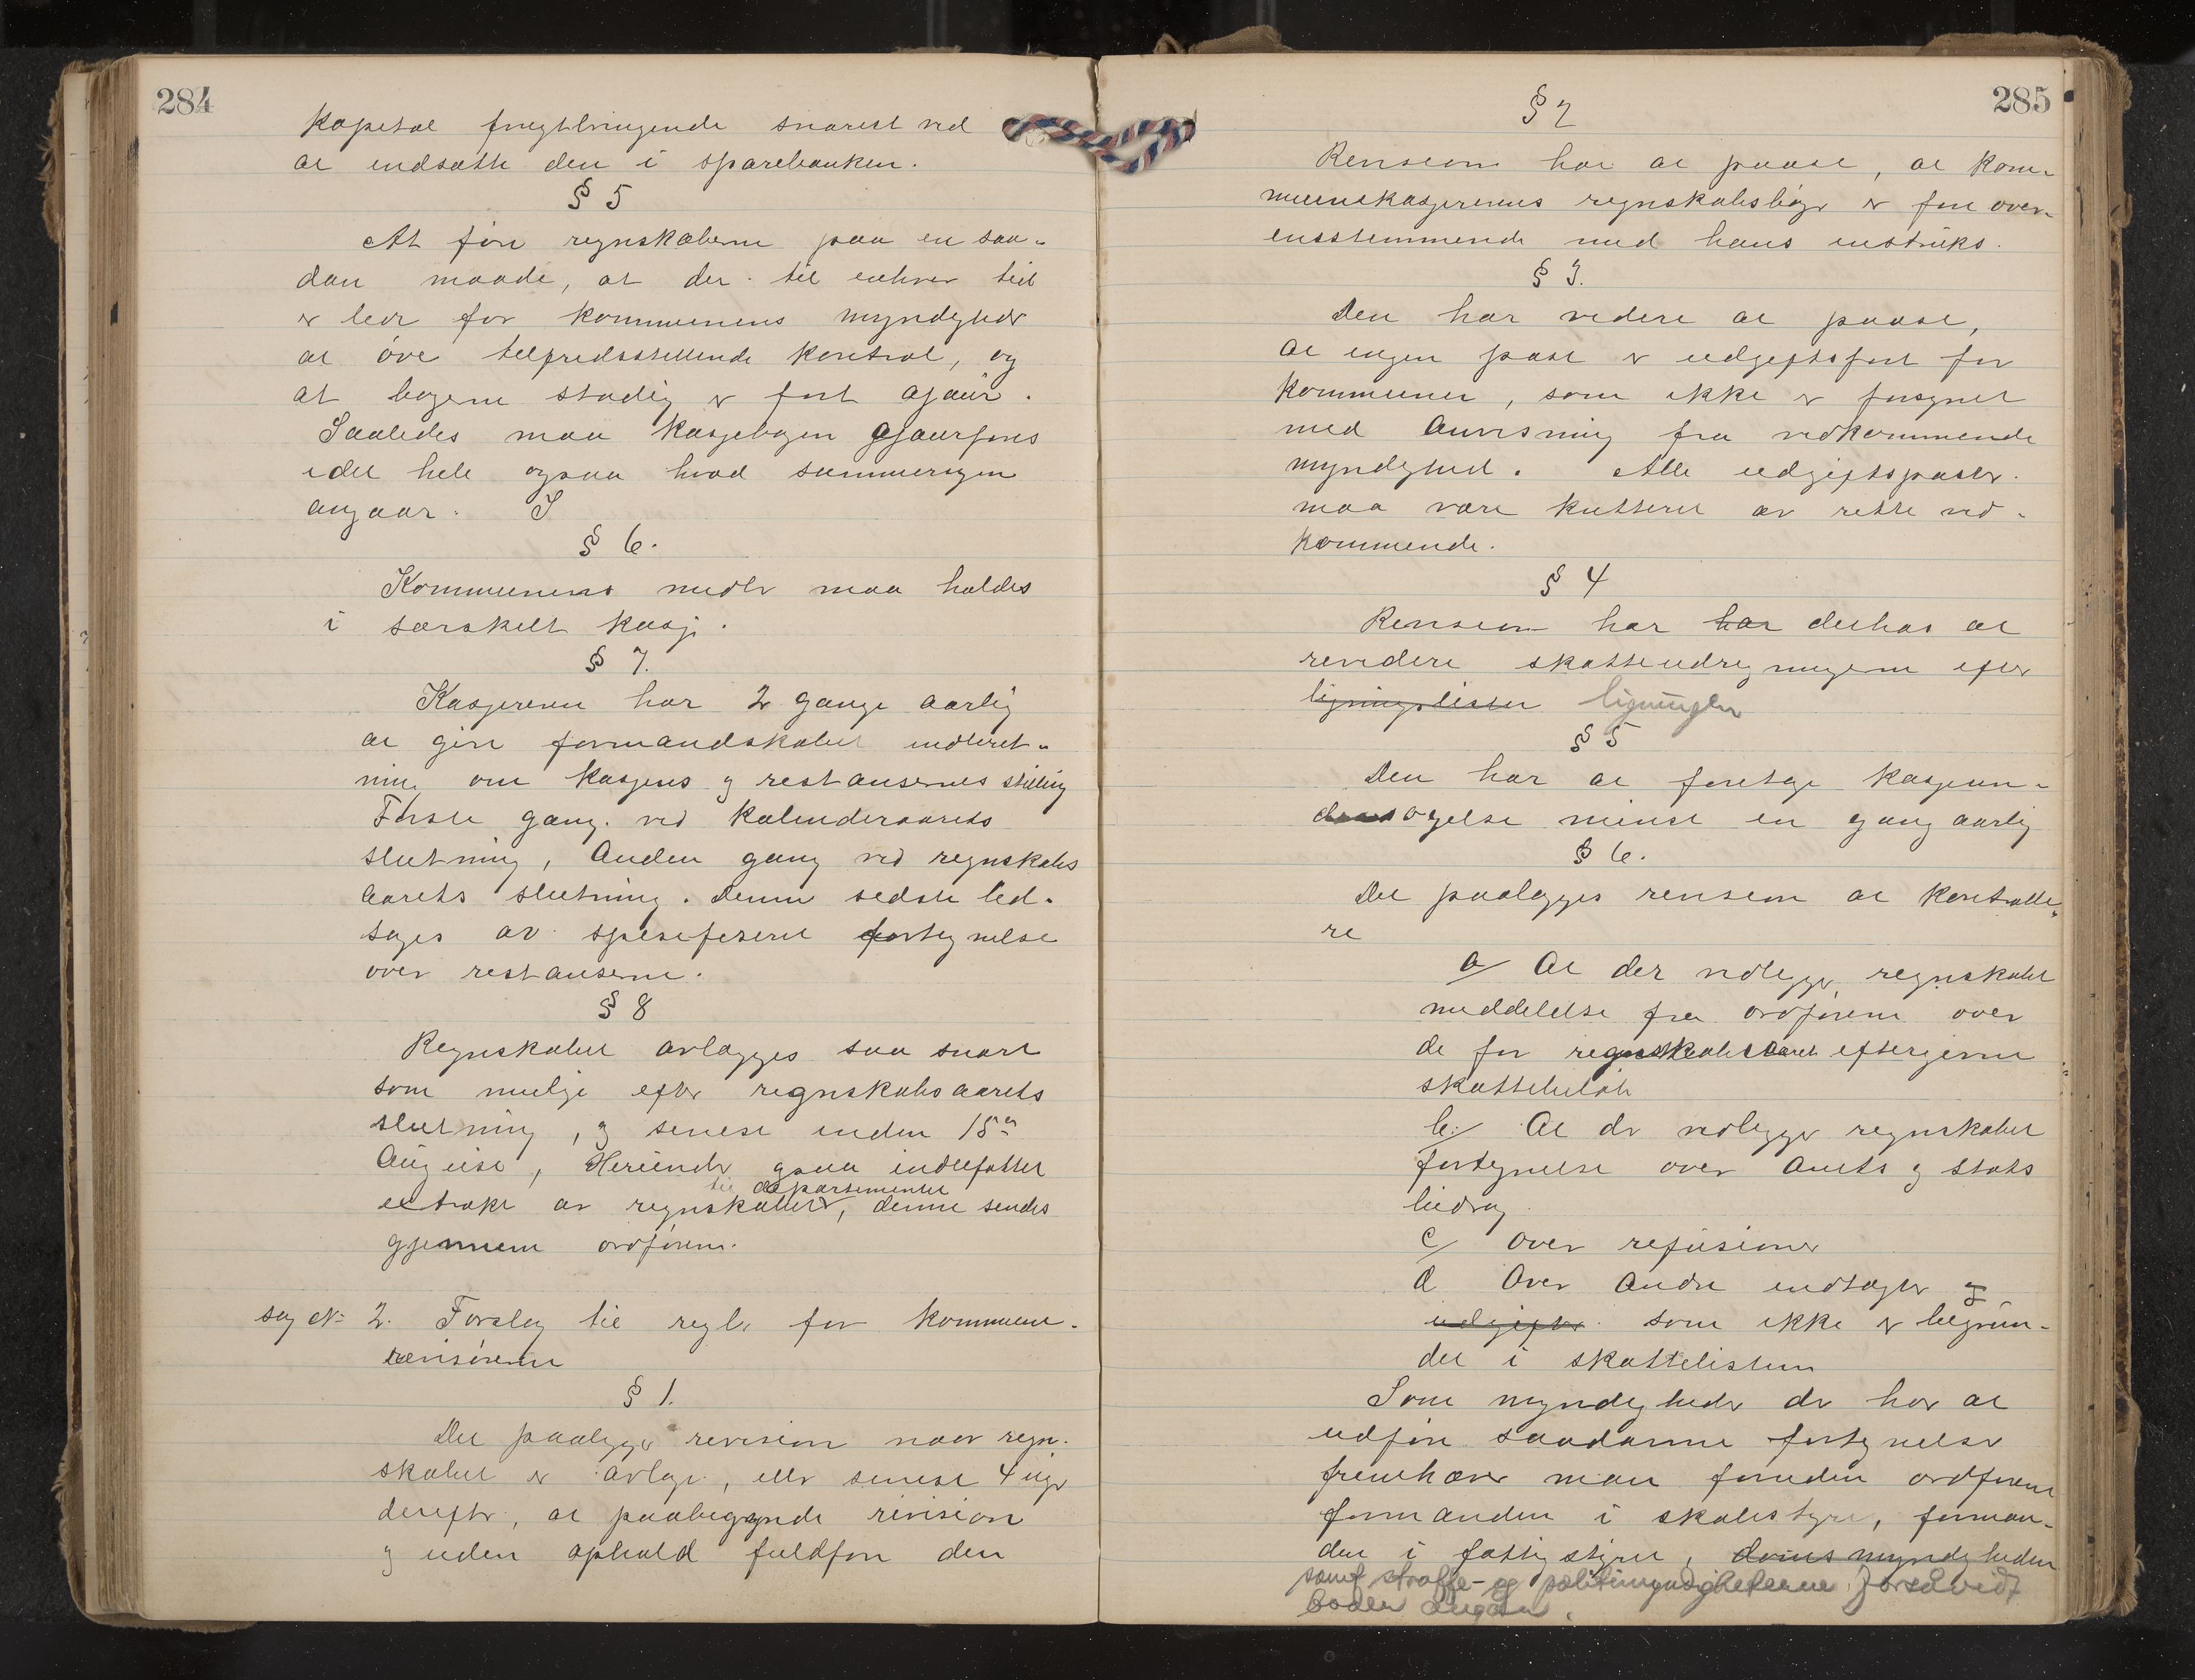 284
Kapital frugtbringende snarest ved
at indsætte den i sparebanken.
§ 5
At føre regnskaberne paa en saa-
dan maade, at der til enhver tid
er let for kommunens myndigheder
at øve tilfredsstillende kontrol, og
at bøgerne stadig er ført ajour.
Saaledes maa kassebogen ajourføres
i det hele ogsaa hvad summeringen
angaar. I
§ 6.
Kommunens midler maa holdes
i særskilt kasse.
§ 7.
Kassereren har 2 gange aarlig
at give formandskabet indberet-
ning om kassens og restansernes stilling
Første gang ved kalenderaarets
slutning, anden gang ved regnskabs
aarets slutning. Denne sidste led-
sages av spesifiseret fortegnelse
over restanserne.
§ 8
Regnskabet avlægges saa snart
som mulig efter regnskabsaarets
slutning, og senest inden 15de
August, Herunder ogsaa indbefattet
til departementet
extrakt av regnskabet, denne sendes
gjennem ordføreren.
sag No 2. Forslag til regler for kommune-
revisionen
§ 1.
Det paaligger revision naar regn-
skabet er avlagt, eller senest 4 uger
derefter, at paabegynde revision
og uden ophold fuldføre den
285
§ 2
Revisionen har at paase, at kom-
munekassererens regnskabsbøger er ført over-
ensstemmende med hans instruks.
§ 3.
Den har videre at paase,
at ingen post er udgiftsført for
kommunen, som ikke er forsynet
med anvisning fra vedkommende
myndighed. Alle udgiftsposter
maa være kvitteret av rette ved-
kommende.
§ 4
Revisionen har har derhos at
revidere skatteudregningerne efter
ligningslisten ligningen
§ 5
Den har at foretage kasseun-
dersøgelse minst en gang aarlig
§ 6.
Det paalægges revisionen at kontrolle-
re
a/ At der vedlægges regnskabet
meddelelse fra ordføreren over
de for regnskabsaaret eftergivne
skattebeløb
b/ At der vedlægges regnskabet
fortegnelse over amts og stats
bidrag
c/ over refusioner
d Over andre indtægter og
udgifter som ikke er begrun-
det i skattelisten
Som myndigheder der har at
udføre saadanne fortegnelser
fremhæver man foruden ordføreren
formanden i skolestyret, forman-
den i fattigstyret, myndigheden
samt straffe- og politimyndighederne forsåvidt
bøder angår.